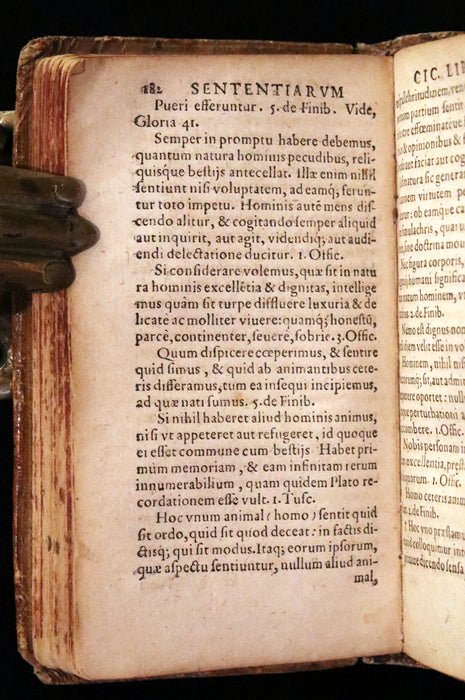 182 SENTENTIARVM
Pueri efferuntur. 5. de Finib. Vide,
Gloria 41.
Semper in promptu habere debemus,
quantum natura hominis pecudibus, reli-
quisque bestijs antecellat. Illæ enim nihil
sentiunt nisi voluptatem, ad eamq; ferun-
tur toto impetu. Hominis autē mens dis-
cendo alitur, & cogitando semper aliquid
aut inquirit, aut agit, videndiq; aut audi-
endi delectatione ducitur. 1. Offic.
Si considerare volemus, quæ sit in natu
ra hominis excellētia & dignitas, intellige
mus quàm sit turpe diffluere luxuria & de
licatè ac molliter viuere: quamq; honestū,
parcè, continenter, seuerè, sobriè. 3. Offic.
Quum dispicere cœperimus, & sentire
quid simus, & quid ab animantibus cete-
ris differamus, tum ea insequi incipiemus,
ad quæ nati sumus. 5. de Finib.
Si nihil haberet aliud hominis animus,
nisi vt appeteret aut refugeret, id quoque
ei esset commune cum bestijs Habet pri-
mùm memoriam, & eam infinitam rerum
innumerabilium, quam quidem Plato re-
cordationem esse vult. 1. Tusc.
Hoc vnum animal (homo) sentit quid
sit ordo, quid sit quod deceat: in factis di-
ctisq; qui sit modus. Itaq; eorum ipsorum,
quæ aspectu sentiuntur, nullum aliud ani-
mal,
CIC. LIB
pulchritudinem, ven
partium sentit
effœminatéue
& opinionibus & f
aut faciat aut cogi
sic generar
virtutem pe
tur: ob eamque ca
simulachris, quar
sine doctrina mora
Nec figura corporis,
humani significa
natum hominem, v
2. de Fin.
Nemo est dignus nom
diem velit esse in vo
Hominem, nihil
sit, aut admi
oportere: nul
perturbationi a
cumbere. 1. Offic.
Nobis personam in
excellentia, præst
1. Offic.
Homo ceteris anim
2. de Finib.
Hoc vno præstamus
colloquimur inte
dicendo sensa